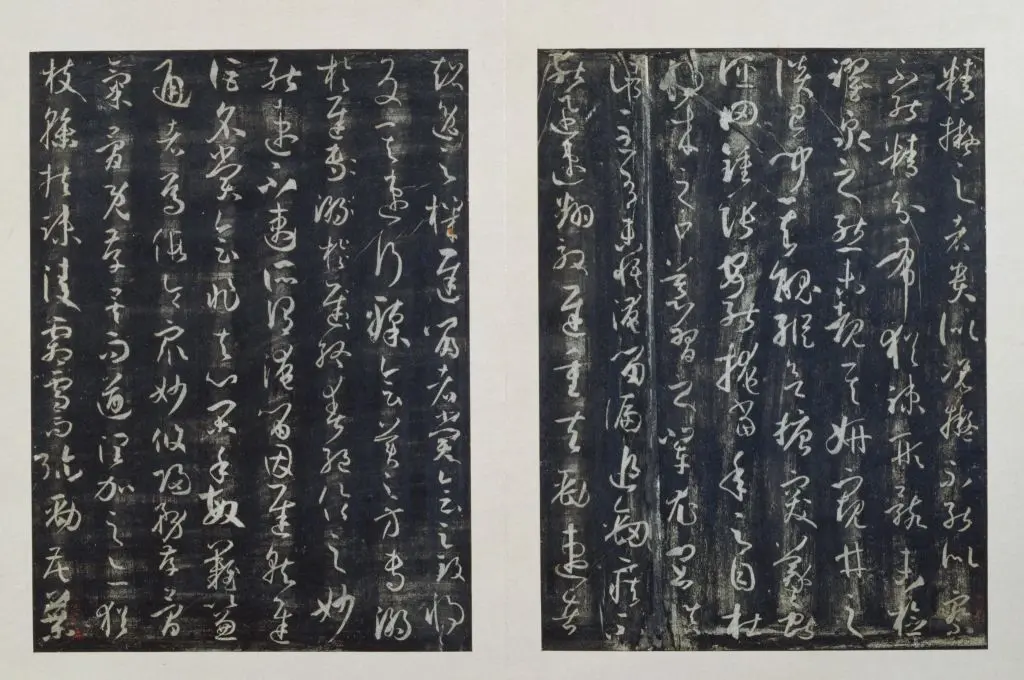 精擬之者貴似況擬不能似察
不能精分布猶疎形骸未檢
躍泉之態未覩其妍窺井之
談已聞其醜縱欲唐突羲獻
誣罔鍾張安能掩當年之目杜
將來之口慕習之輩尤宜慎諸
至有未悟淹留偏追勁疾不
能迅速翻效遲重夫勁速者
超逸之機遲留者賞會之致將
反其速行臻會美之方專溺
於遲專溺於遲終爽絕倫之妙
能速不速所謂淹留因遲就遲
詎名賞會非夫心閑手敏難以兼
通者焉假令眾妙攸歸務存骨
氣骨既存矣而遒潤加之亦猶
枝幹扶疎凌霜雪而彌勁花葉